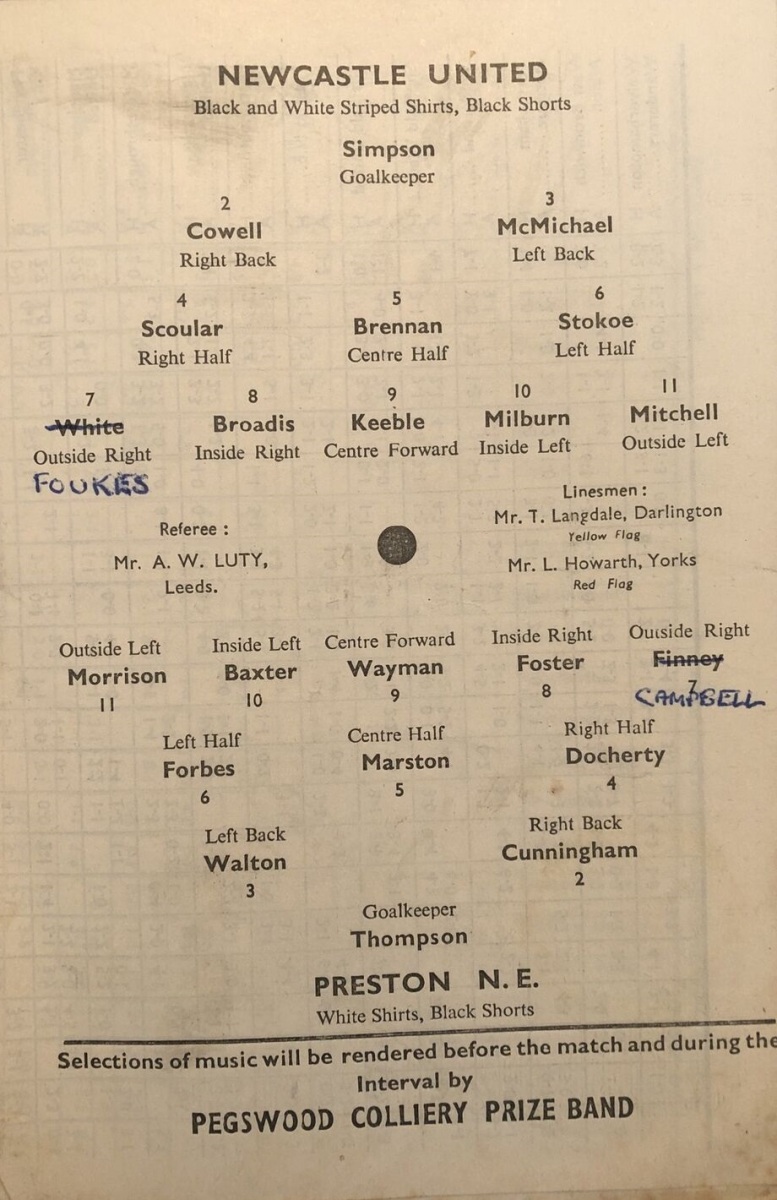 NEWCASTLE UNITED
Black and White Striped Shirts, Black Shorts
Simpson
Goalkeeper
2 3
Cowell McMichael
Right Back Left Back
4 5 6
Scoular Brennan Stokoe
Right Half Centre Half Left Half
7 8 9 10 11
White Broadis Keeble Milburn Mitchell
Outside Right Inside Right Centre Forward Inside Left Outside Left
FOUKES
Linesmen :
Referee : Mr. T. Langdale, Darlington
Yellow Flag
Mr. A. W. LUTY, Mr. L. Howarth, Yorks
Leeds. Red Flag
Outside Left Inside Left Centre Forward Inside Right Outside Right
Morrison Baxter Wayman Foster Finney
11 10 9 8 7
CAMPBELL
Left Half Centre Half Right Half
Forbes Marston Docherty
6 5 4
Left Back Right Back
Walton Cunningham
3 2
Goalkeeper
Thompson
PRESTON N.E.
White Shirts, Black Shorts
Selections of music will be rendered before the match and during the
Interval by
PEGSWOOD COLLIERY PRIZE BAND